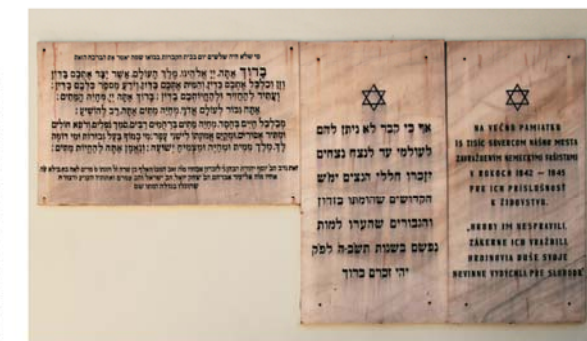 מי שלא היה שלשים יום בבית הקברות בבואו שמה יאמר את הברכה הזאת
ברוך אתה יי אלהינו מלך העולם אשר יצר אתכם בדין
וזן וכלכל אתכם בדין והמית אתכם בדין ויודע מספר כלכם בדין
ועתיד להחזיר ולהחיותכם בדין: ברוך אתה יי מחיה המתים:
אתה גבור לעולם אדני מחיה מתים אתה רב להושיע:
מכלכל חיים בחסד מחיה מתים ברחמים רבים סומך נופלים ורופא חולים
ומתיר אסורים ומקים אמונתו לישני עפר מי כמוך בעל גבורות ומי דומה
לך מלך ממית ומחיה ומצמיח ישועה: ונאמן אתה להחיות מתים:
אף כי קבר לא ניתן להם
לעולמי עד לנצח נצחים
יזכרו חללי הנצים ימ״ש
הקדושים שהומתו בזדון
והגבורים שהערו למות
נפשם בשנות תש״ב-ה לפ״ק
יהי זכרם ברוך
NA VEČNÚ PAMIATKU
15 TISÍC SÚVERCOM NÁŠHO MESTA
ZAVRAŽDENÝM NEMECKÝMI FAŠISTAMI
V ROKOCH 1942 – 1945
PRE ICH PRÍSLUŠNOSŤ
K ŽIDOVSTVU.
„HROBY IM NESPRAVILI,
ZÁKERNE ICH VRAŽDILI
HRDINOVIA DUŠE SVOJE
NEVINNE VYDÝCHLI PRE SLOBODU"